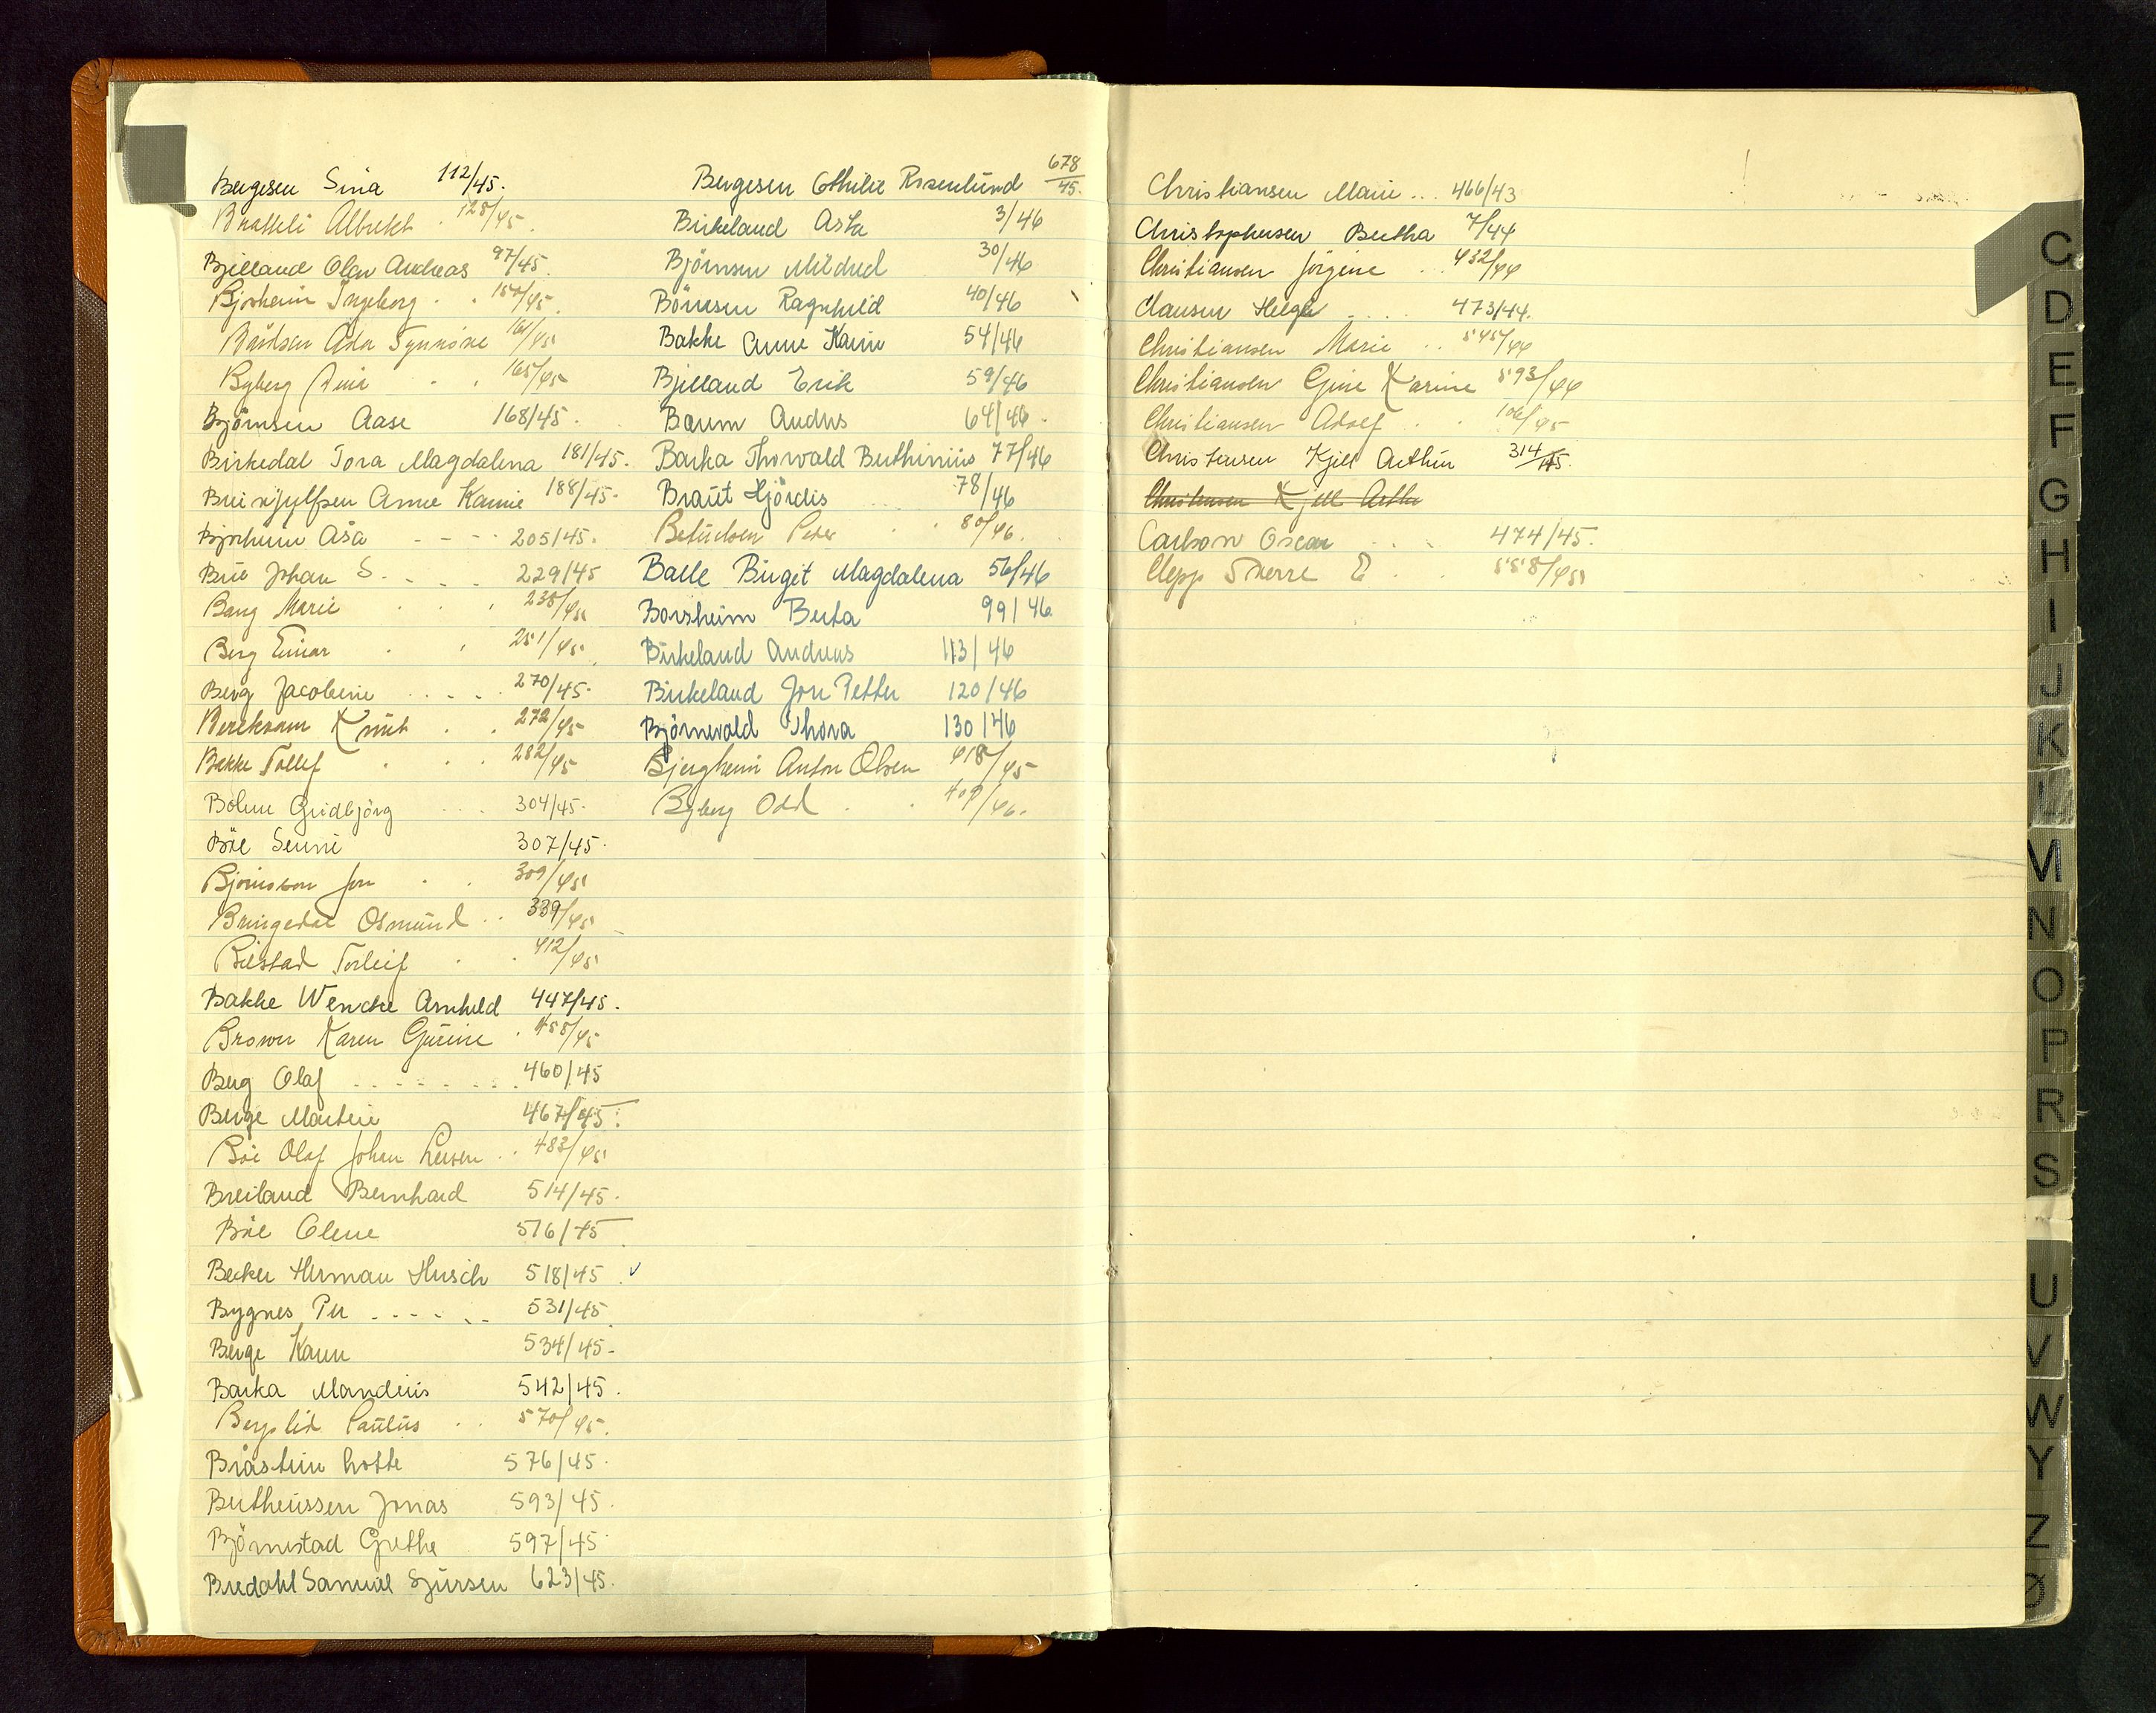 Bergesen Sina 112/45.
Bratteli Albrekt . 128/45.
Bjelland Olav Andreas 97/45.
Bjorheim Ingeborg . . 150/45.
Bårdsen Ada Synnöve 161/45
Byberg Anna . . 165/45
Björnsen Aase 168/45.
Birkedal Tora Magdalena 181/45.
Breinjulfsen Anne Kamie 188/45.
Bjorheim Åsa - - - - 205/45.
Brie Johan S. . - - 229/45
Bang Marie . . . 238/45
Berg Einar . . 251/45.
Berg Jacobine . . - . 270/45.
Berekvam Knut . . 272/45
Bakke Tollef . . . 282/45
Bohm Gudbjörg . . . 304/45.
Böe Senni 307/45.
Bjornson Jon . . 309/45
Bringedal Osmund . . 339/45
Bilstad Torleif . . 412/45
Bakke Wenche Arnhild 447/45.
Brower Karen Gurine . 455/45
Berg Olaf . . - . . - . . 460/45
Berge Martin 467/45.
Böe Olaf Johan Larsen . . 483/45
Breiland Bernhard 514/45.
Böe Olene 516/45
Becker Herman Husch 518/45 . v
Bygnes Per - - - - . - 531/45
Berge Karen 534/45.
Barka Mandius 542/45.
Berglid Paulus . . 570/45.
Bråstein Lotte 576/45.
Bertheussen Jonas 593/45.
Björnestad Grethe 597/45.
Bredahl Samuel Sjursen 623/45.
Bergesen Othilie Rosenlund 678/45.
Birkeland Asta 3/46
Björnsen Mildred 30/46
Börresen Ragnhild 40/46
Bakke Anne Karin 54/46
Bjelland Erik 59/46
Baum Andres 64/46.
Barka Thorvald Berthinius 77/46
Braut Hjördis 78/46
Betuelsen Peter . . 80/46.
Balle Birget Magdalena 56/46
Borsheim Berta 99/46
Birkeland Andreas 113/46
Birkeland Jon Petter 120/46
Björnevold Thora 130/46
Bjergheim Anton Olsen 418/45
Byberg Odd . . 409/46.
Christiansen Marie . . . 466/43
Christophersen Bertha 7/44
Christiansen Jörgine . . 432/44
Clausen Helge . . . . 473/44.
Christiansen Marie . . 545/44
Christiansen Gine Karine 593/44
Christiansen Adolf . . 106/45
Christensen Kjell Arthur 314/45.
Christensen Kjell Arthu
Carlson Oscar . . . 474/45.
Clepp Sverre E . . 558/45
C
D
E
F
G
H
I
J
K
L
M
N
O
P
R
S
U
V
W
Y
Z
Ø